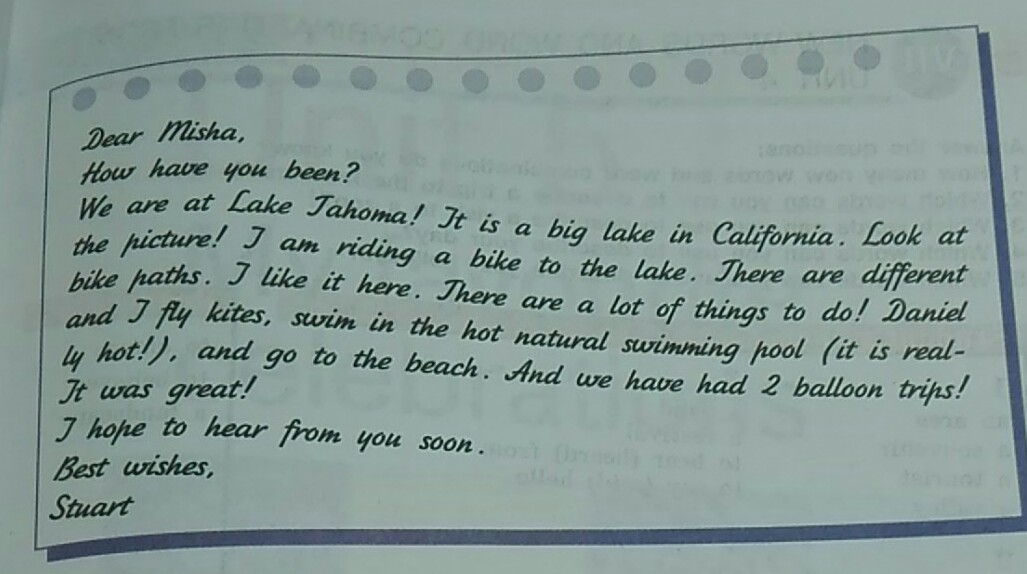 Dear Misha,
How have you been?
We are at Lake Tahoma! It is a big lake in California. Look at
the picture! I am riding a bike to the lake. There are different
bike paths. I like it here. There are a lot of things to do! Daniel
and I fly kites, swim in the hot natural swimming pool (it is real-
ly hot!), and go to the beach. And we have had 2 balloon trips!
It was great!
I hope to hear from you soon.
Best wishes,
Stuart